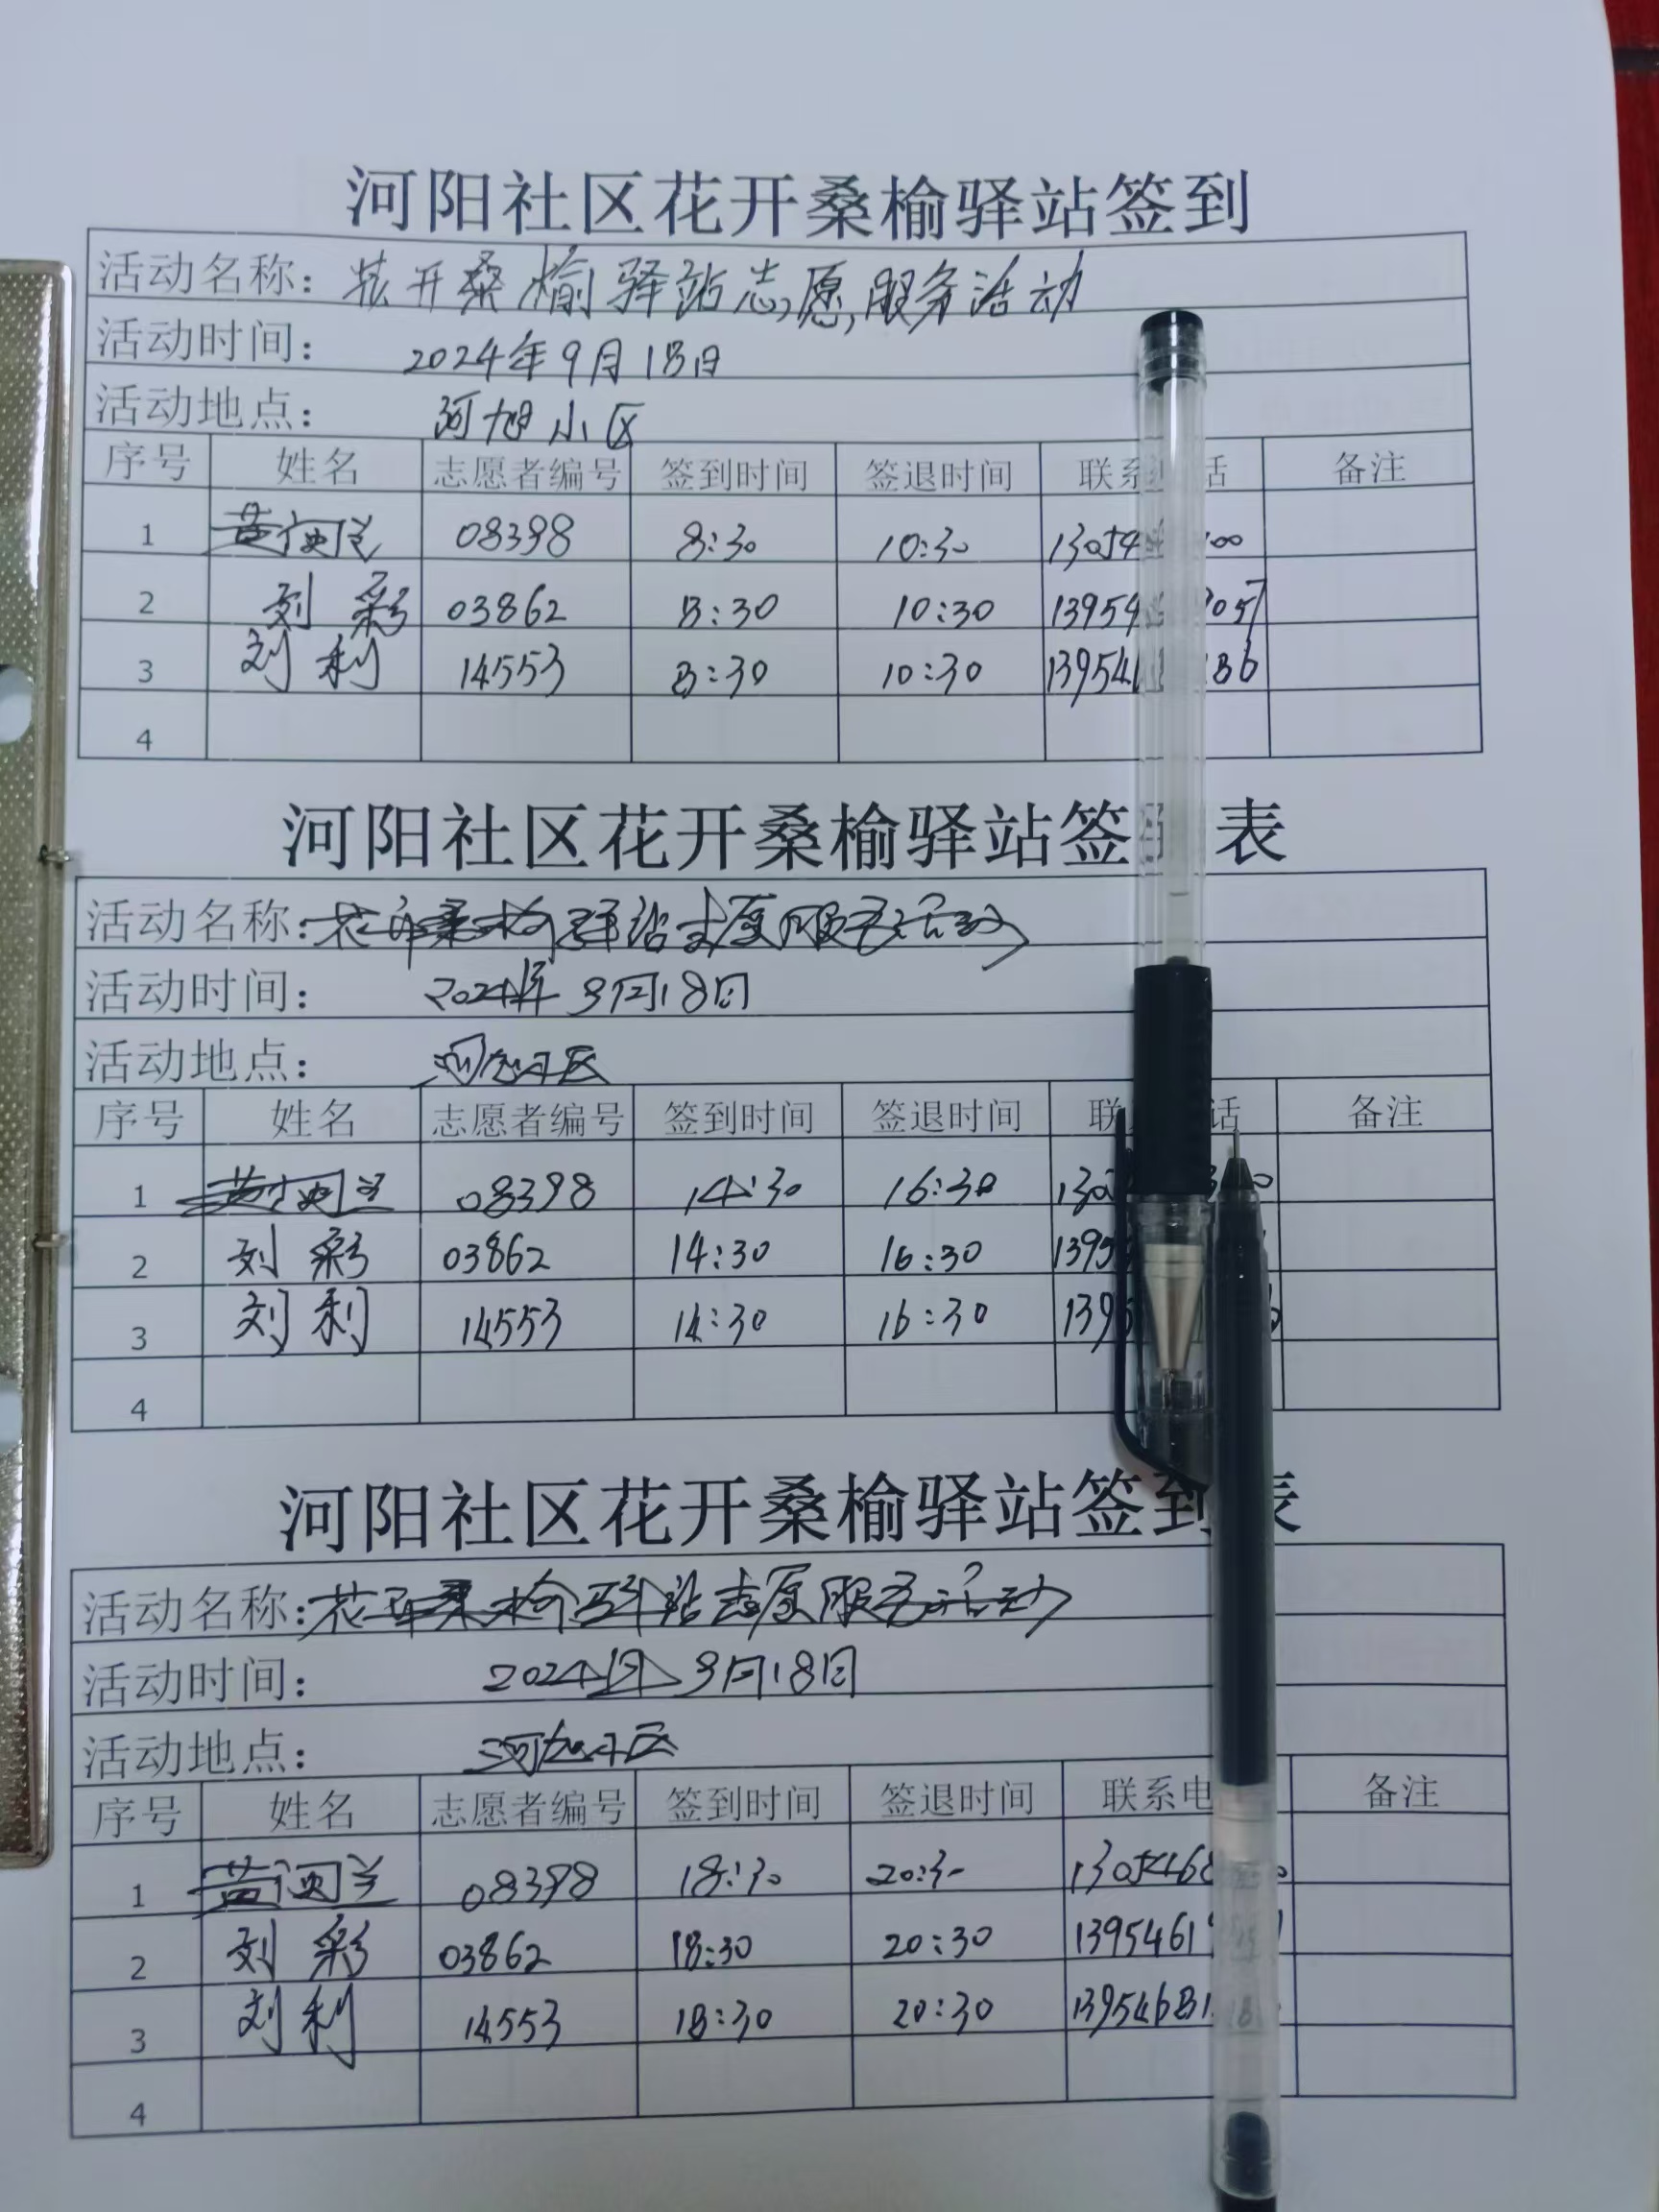 河阳社区花开桑榆驿站签到
活动名称：花开桑榆驿站志愿服务活动
活动时间： 2024年9月18日
活动地点： 河旭小区
序号 姓名 志愿者编号 签到时间 签退时间 联系 话 备注
1 08398 8:30 10:30
2 刘彩 03862 8:30 10:30
3 刘利 14553 8:30 10:30
4
河阳社区花开桑榆驿站签 表
活动名称：花开桑榆驿站志愿服务活动
活动时间： 2024年9月18日
活动地点： 河旭小区
序号 姓名 志愿者编号 签到时间 签退时间 联 话 备注
1 08398 14:30 16:30
2 刘彩 03862 14:30 16:30
3 刘利 14553 14:30 16:30
4
河阳社区花开桑榆驿站签到表
活动名称：花开桑榆驿站志愿服务活动
活动时间： 2024年9月18日
活动地点： 河旭小区
序号 姓名 志愿者编号 签到时间 签退时间 联系电 备注
1 08398 18:30 20:30
2 刘彩 03862 18:30 20:30
3 刘利 14553 18:30 20:30
4